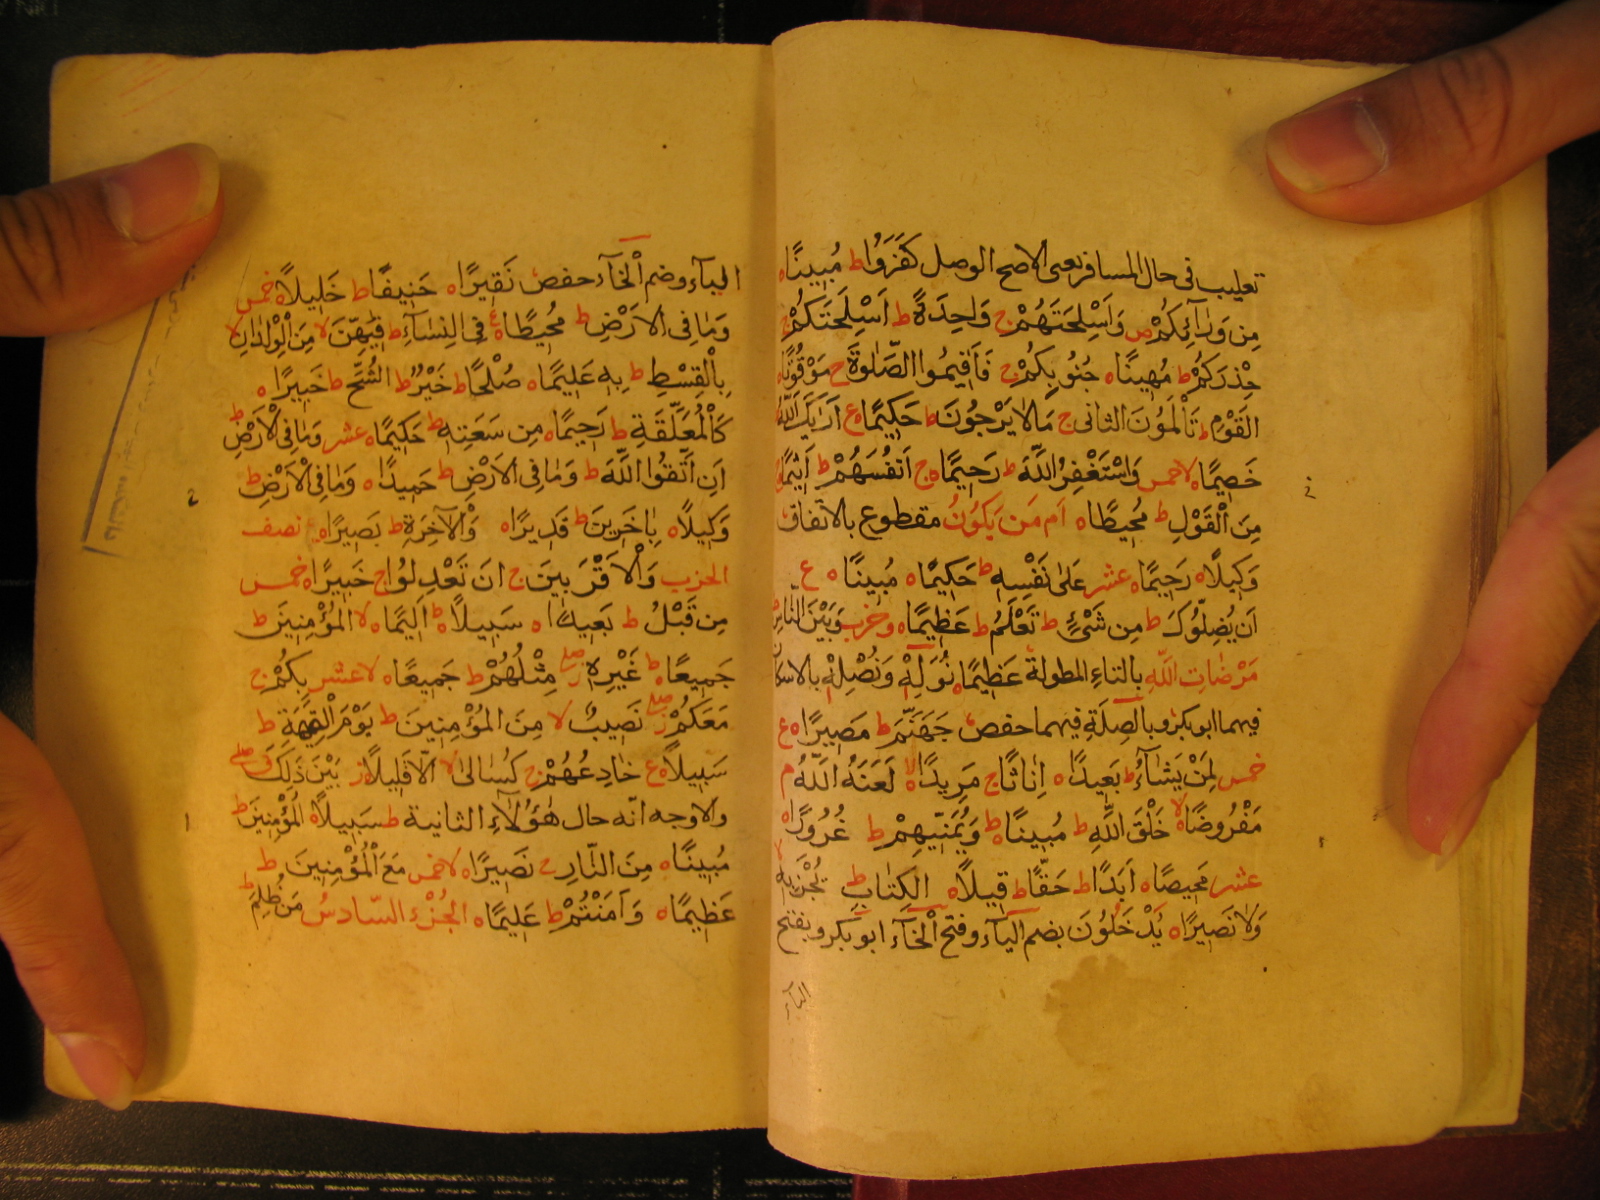 تغليب فى حال المسافر يعنى الاصح الوصل كَفَرُوا ط مُبِينًا ه
مِن وَرَآئِكُمْ ص وَاَسْلِحَتَهُمْ ج وَاحِدَةً ط اَسْلِحَتَكُمْ ج
حِذْرَكُمْ ط مُهِينًا ه جُنُوبِكُمْ ج فَاَقِيمُوا الصَّلٰوةَ ج مَوْقُوتًا ه
القَوْمِ ط تَأْلَمُونَ الثانى ج مَالَا يَرْجُونَ ط حَكِيمًا ه ع اَرٰيكَ اللّٰهُ
خَصِيمًا ه لا خمس وَاسْتَغْفِرِ اللّٰهَ ط رَحِيمًا ه ج اَنْفُسَهُمْ ط اَثِيمًا
مِنَ الْقَوْلِ ط مُحِيطًا ه اَم مَن يَكُونُ مقطوع بالاتفاق
وَكِيلًا ه رَحِيمًا ه عشر عَلٰى نَفْسِهِ ط حَكِيمًا ه مُبِينًا ه ع
اَن يُضِلُّوكَ ط مِن شَىْءٍ ط تَعْلَمُ ط عَظِيمًا ه وحزب وَبَيْنَ النَّاسِ
مَرْضَاتِ اللّٰهِ بالتاء المطولة عَظِيمًا ه نُوَلِّهْ وَنُصْلِهْ بالاسكان
فيهما ابو بكر وبالصِلَةِ فيهما حفص جَهَنَّمَ ط مَصِيرًا ه ع
خمس لِمَنْ يَشَآءُ ط بَعِيدًا ه اِنَاثًا ج مَرِيدًا لا لَعَنَهُ اللّٰهُ م
مَفْرُوضًا ه لا خَلْقَ اللّٰهِ ط مُبِينًا ه ط وَيُمَنِّيهِمْ ط غُرُورًا ه
عشر مَحِيصًا ه اَبَدًا ط حَقًّا ط قِيلًا ه الكِتَابِ ط يُجْزَ بِهِ لا
وَلَا نَصِيرًا ه يُدْخَلُونَ بضم اليآء وفتح الْخَآء ابو بكر وبفتح
اليآء
اليآء وضم الْخَآء حفص نَقِيرًا ه حَنِيفًا ط خَلِيلًا ه خمس
وَمَا فِى الاَرْضِ ط مُحِيطًا ه ع فِى النِسَآءِ ط فِيهِنَّ لا مِنَ الْوِلْدَانِ لا
بِالْقِسْطِ ط بِهِ عَلِيمًا ه صُلْحًا ط خَيْرٌ ط الشُّحَّ ط خَبِيرًا ه
كَالْمُعَلَّقَةِ ط رَحِيمًا ه مِن سَعَتِهِ ط حَكِيمًا ه عشر وَمَا فِى الْاَرْضِ ط
اَنِ اتَّقُوا اللّٰهَ ط وَمَا فِى الاَرْضِ ط حَمِيدًا ه وَمَا فِى الْاَرْضِ ط
وَكِيلًا ه بِاٰخَرِينَ ط قَدِيرًا ه وَالْاٰخِرَةِ ط بَصِيرًا ه نصف
الحزب وَالْاَقْرَبِينَ ج اَن تَعْدِلُوا ج خَبِيرًا ه خمس
مِن قَبْلُ ط بَعِيدًا ه سَبِيلًا ه ط اَلِيمًا ه لا المُؤْمِنِينَ ط
جَمِيعًا ه ط غَيْرِهِ صلے مِثْلُهُمْ ط جَمِيعًا ه لا عشر بِكُمْ ج
مَعَكُمْ صلے نَصِيبٌ لا مِنَ المُؤْمِنِينَ ط يَوْمَ القِيٰمَةِ ط
سَبِيلًا ه ع خَادِعُهُمْ ج كُسَالٰى لا اِلَّا قَلِيلًا ز بَيْنَ ذٰلِكَ ق صلے
والاوجه انه حال هٰؤُلَآءِ الثانية ط سَبِيلًا ه المُؤْمِنِينَ ط
مُبِينًا ه مِنَ النَّارِ ج نَصِيرًا ه لا خمس مَعَ الْمُؤْمِنِينَ ط
عَظِيمًا ه وَاٰمَنْتُمْ ط عَلِيمًا ه الجُزْءُ السَّادسُ مَن ظُلِمَ ط